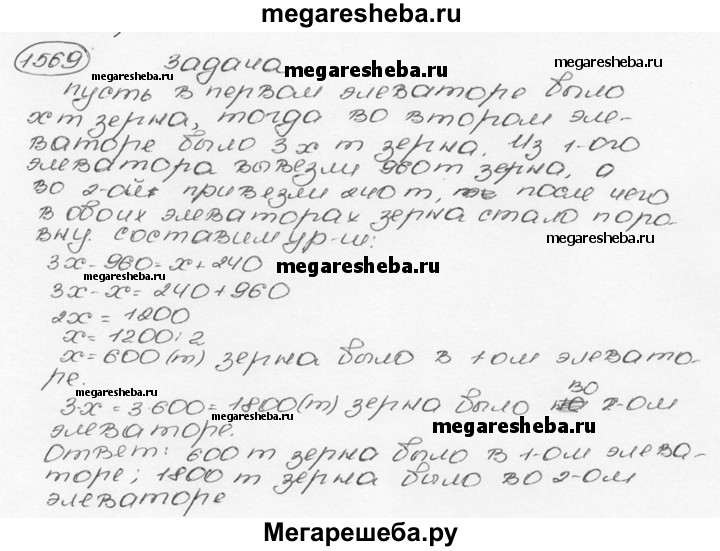 megaresheba.ru
1569 задача
megaresheba.ru megaresheba.ru
пусть в первом элеваторе было
х т зерна, тогда во втором эле-
ваторе было 3х т зерна. Из 1-ого
элеватора вывезли 960 т зерна, а
во 2-ой привезли 240 т, после чего
в обоих элеваторах зерна стало поро-
megaresheba.ru
вну. составим ур-ш:
3х-960=х+240 megaresheba.ru
megaresheba.ru
3х-х=240+960
2х=1200
х=1200:2
megaresheba.ru
х=600(т) зерна было в 1-ом элевато-
ре.
megaresheba.ru
3·х=3·600=1800(т) зерна было во 2-ом
элеваторе. megaresheba.ru
Ответ: 600 т зерна было в 1-ом элева-
megaresheba.ru
торе; 1800 т зерна было во 2-ом
элеваторе
Мегарешеба.ру